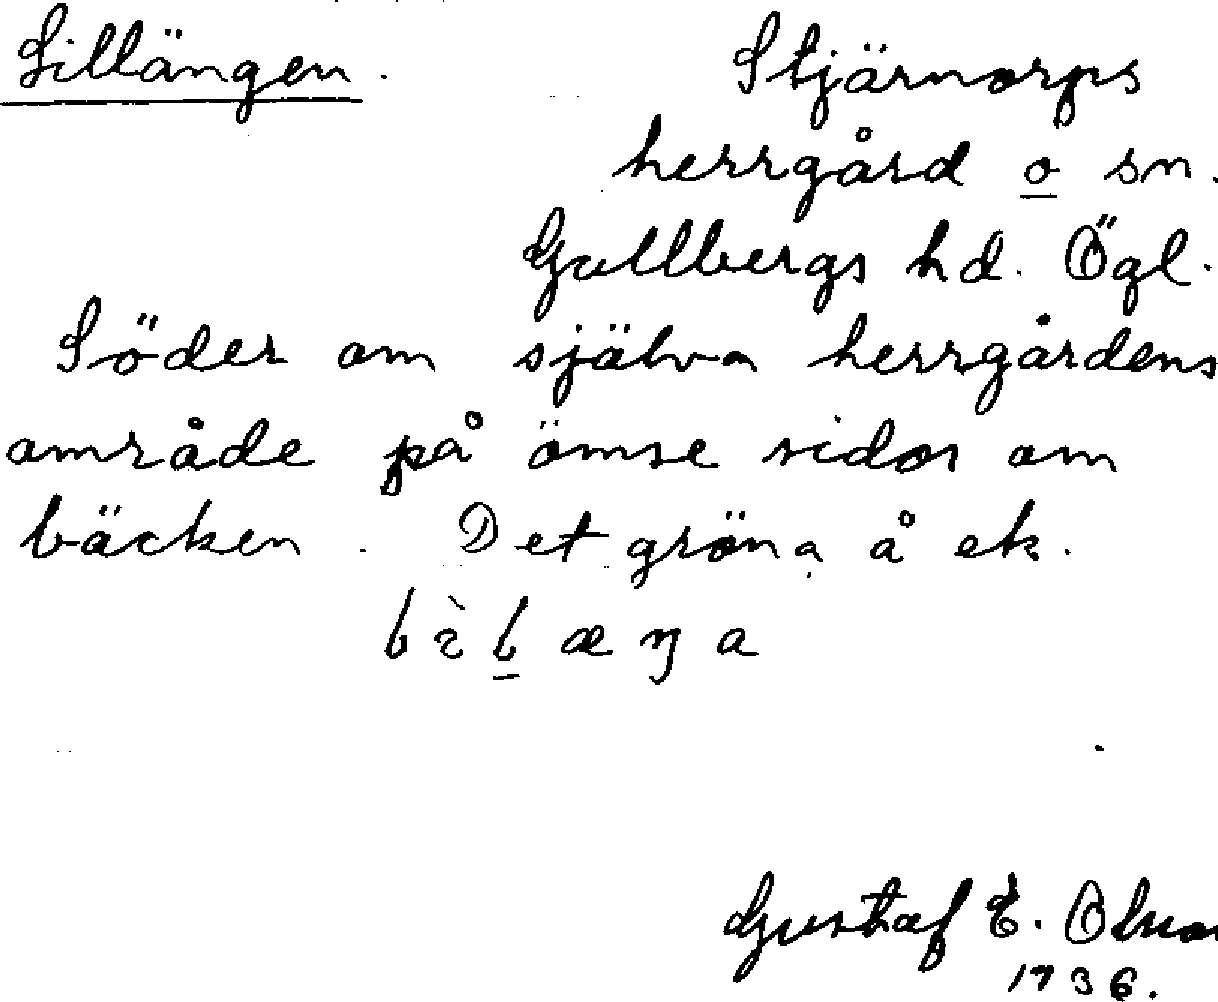 Lillängen. Stjärnorps
herrgård o sn.
Gullbergs hd. Ögl.
Söder om själva herrgårdens
område på ömse sidor om
bäcken. Det gröna å ek.
l ì l æ ŋ a
Gustaf E.
1936.